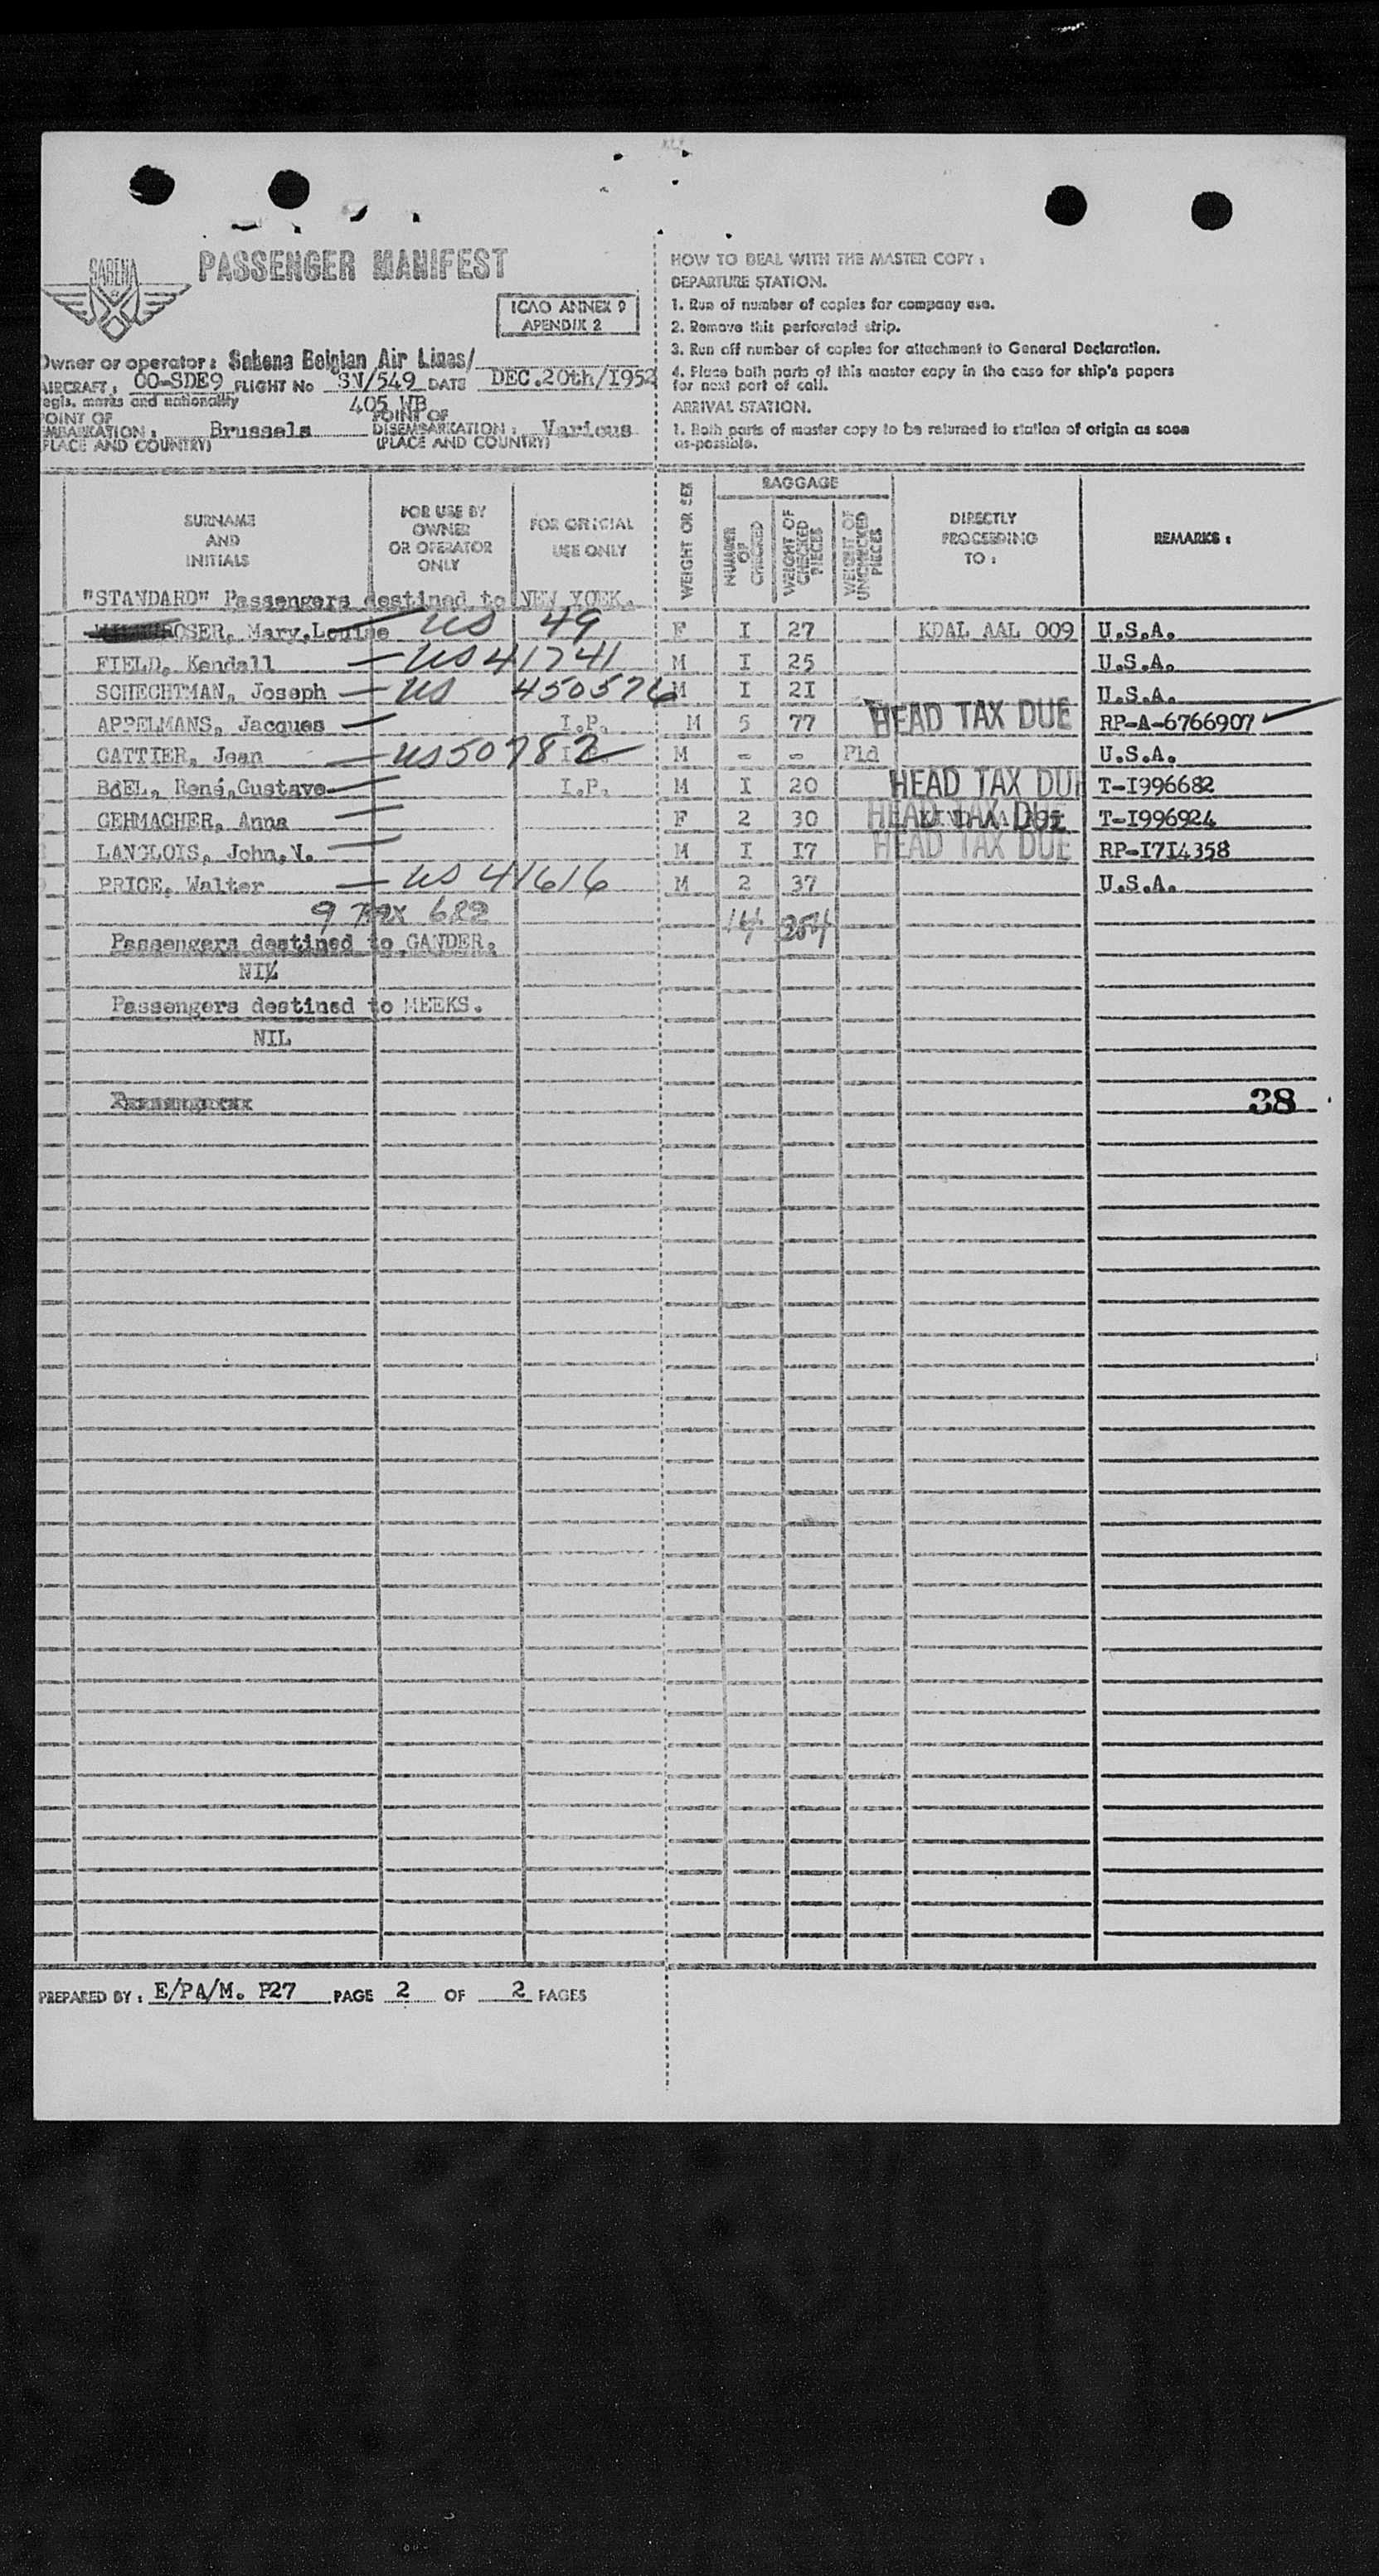 SABENA
PASSENGER MANIFEST
ICAO ANNEX 9
APENDIX 2
Owner or operator: Sabena Belgian Air Lines/
AIRCRAFT: OO-SDE9 FLIGHT No SN/549 DATE DEC.20th/1952
egis. marks and nationality 405 WB
POINT OF EMBARKATION: Brussels POINT OF DISEMBARKATION: Various
(PLACE AND COUNTRY) (PLACE AND COUNTRY)
HOW TO DEAL WITH THE MASTER COPY:
DEPARTURE STATION.
1. Run of number of copies for company use.
2. Remove this perforated strip.
3. Run off number of copies for attachment to General Declaration.
4. Place both parts of this master copy in the case for ship's papers
for next port of call.
ARRIVAL STATION.
1. Both parts of master copy to be returned to station of origin as soon
as-possible.
SURNAME AND INITIALS
FOR USE BY OWNER OR OPERATOR ONLY
FOR OFICIAL USE ONLY
WEIGHT OR SEX
BAGGAGE
NUMBER OF CHECKED
WEIGHT OF CHECKED PIECES
WEIGHT OF UNCHECKED PIECES
DIRECTLY PROCEEDING TO:
REMARKS:
"STANDARD" Passengers destined to NEW YORK.
OSER, Mary,Louise US 49 F I 27 KDAL AAL 009 U.S.A.
FIELD, Kendall US 41741 M I 25 U.S.A.
SCHECHTMAN, Joseph US 450576 M I 2I U.S.A.
APPELMANS, Jacques I.P. M 5 77 HEAD TAX DUE RP-A-6766907
GATTIER, Jean US 50782 M - - Pld U.S.A.
BoEL, René,Gustave I.P. M I 20 HEAD TAX DUE T-I996682
GEHMACHER, Anna F 2 30 HEAD TAX DUE T-I996924
LANGLOIS, John,V. M I I7 HEAD TAX DUE RP-I7I4358
PRICE, Walter US 41616 M 2 37 U.S.A.
9 682 14 254
Passengers destined to GANDER.
NIL
Passengers destined to MEEKS.
NIL
38
PREPARED BY: E/PA/M. P27 PAGE 2 OF 2 PAGES